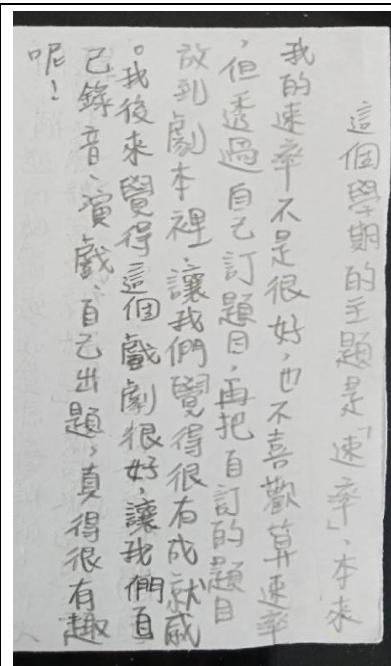 這個學期的主題是「速率」，本來
我的速率不是很好，也不喜歡算速率
，但透過自己訂題目，再把自訂的題目
放到劇本裡，讓我們覺得很有成就感
。我後來覺得這個戲劇很好，讓我們自
己錄音、演戲、自己出題，真得很有趣
呢！